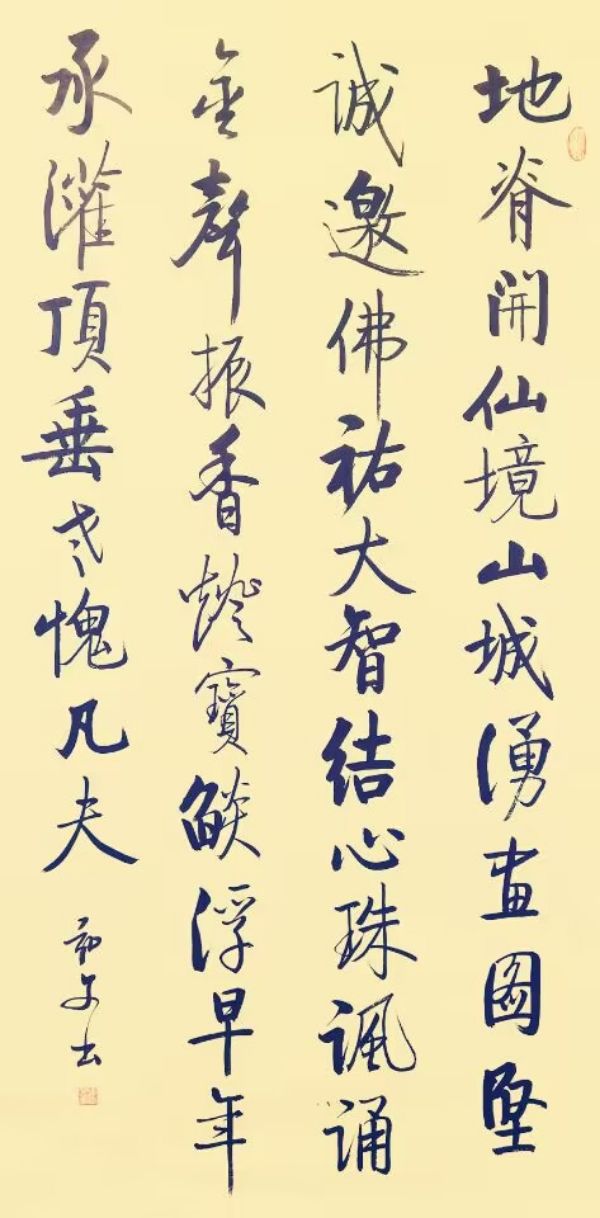 地脊開仙境山城湧畫圖堅
誠邀佛祐大智結心珠諷誦
金聲振香燈寶燄浮早年
承灌頂垂老愧凡夫